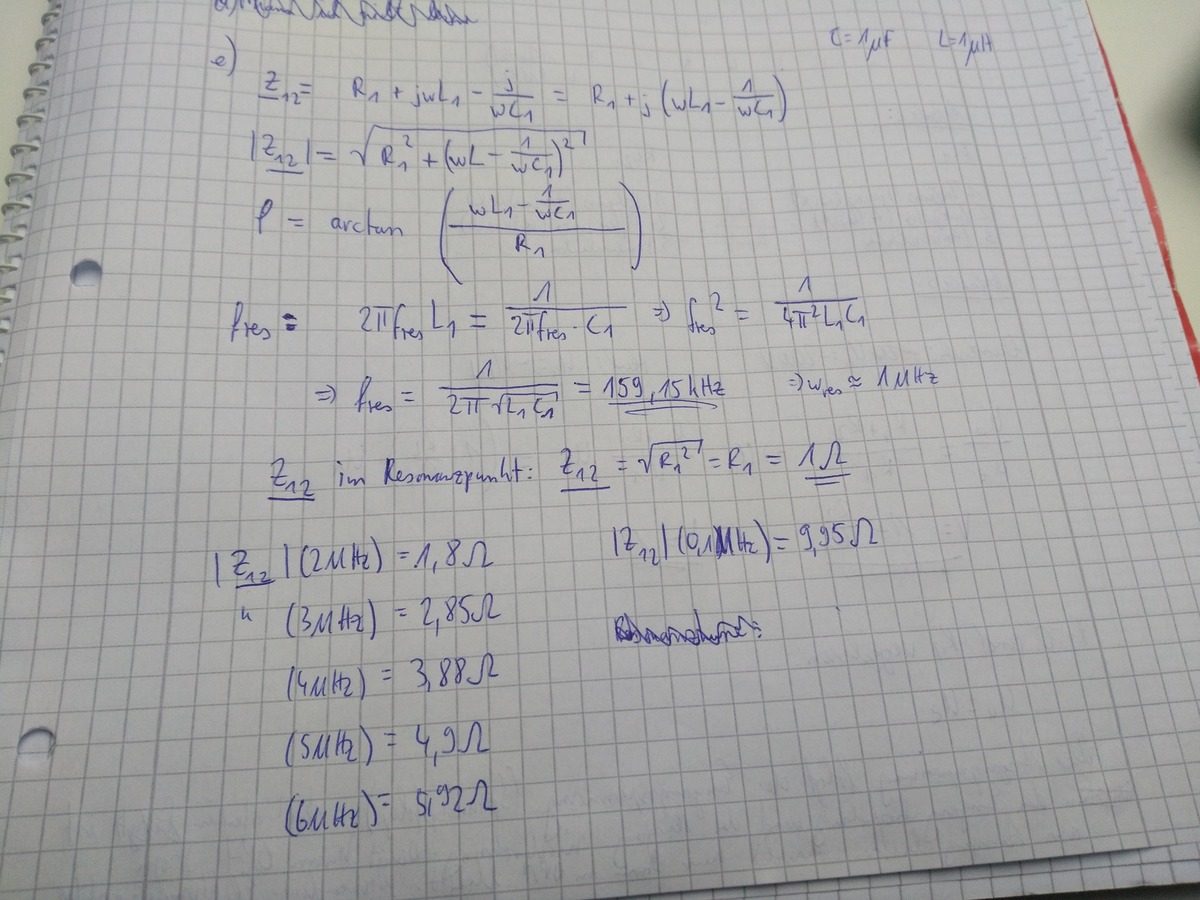 C=1µF L=1µH
e)
Z12= R1 + jwL1 - j/wC1 = R1 + j (wL1 - 1/wC1)
|Z12| = √(R1² + (wL - 1/wC1)²)
φ = arctan ((wL1 - 1/wC1)/R1)
fres = 2πfres L1 = 1/(2πfres · C1) ⇒ fres² = 1/(4π²L1C1)
⇒ fres = 1/(2π√(L1C1)) = 159,15kHz ⇒ wres ≈ 1MHz
Z12 im Resonanzpunkt: Z12 = √(R1²) = R1 = 1Ω
|Z12|(2MHz) = 1,8Ω |Z12|(0,1MHz) = 9,95Ω
" (3MHz) = 2,85Ω
(4MHz) = 3,88Ω
(5MHz) = 4,9Ω
(6MHz) = 5,92Ω